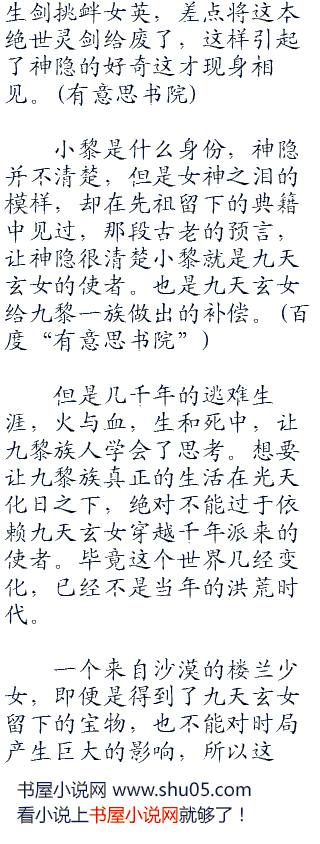 生剑挑衅女英，差点将这本
绝世灵剑给废了，这样引起
了神隐的好奇这才现身相
见。(有意思书院)
小黎是什么身份，神隐
并不清楚，但是女神之泪的
模样，却在先祖留下的典籍
中见过，那段古老的预言，
让神隐很清楚小黎就是九天
玄女的使者。也是九天玄女
给九黎一族做出的补偿。(百
度“有意思书院”)
但是几千年的逃难生
涯，火与血，生和死中，让
九黎族人学会了思考。想要
让九黎族真正的生活在光天
化日之下，绝对不能过于依
赖九天玄女穿越千年派来的
使者。毕竟这个世界几经变
化，已经不是当年的洪荒时
代。
一个来自沙漠的楼兰少
女，即便是得到了九天玄女
留下的宝物，也不能对时局
产生巨大的影响，所以这
书屋小说网 www.shu05.com
看小说上书屋小说网就够了！